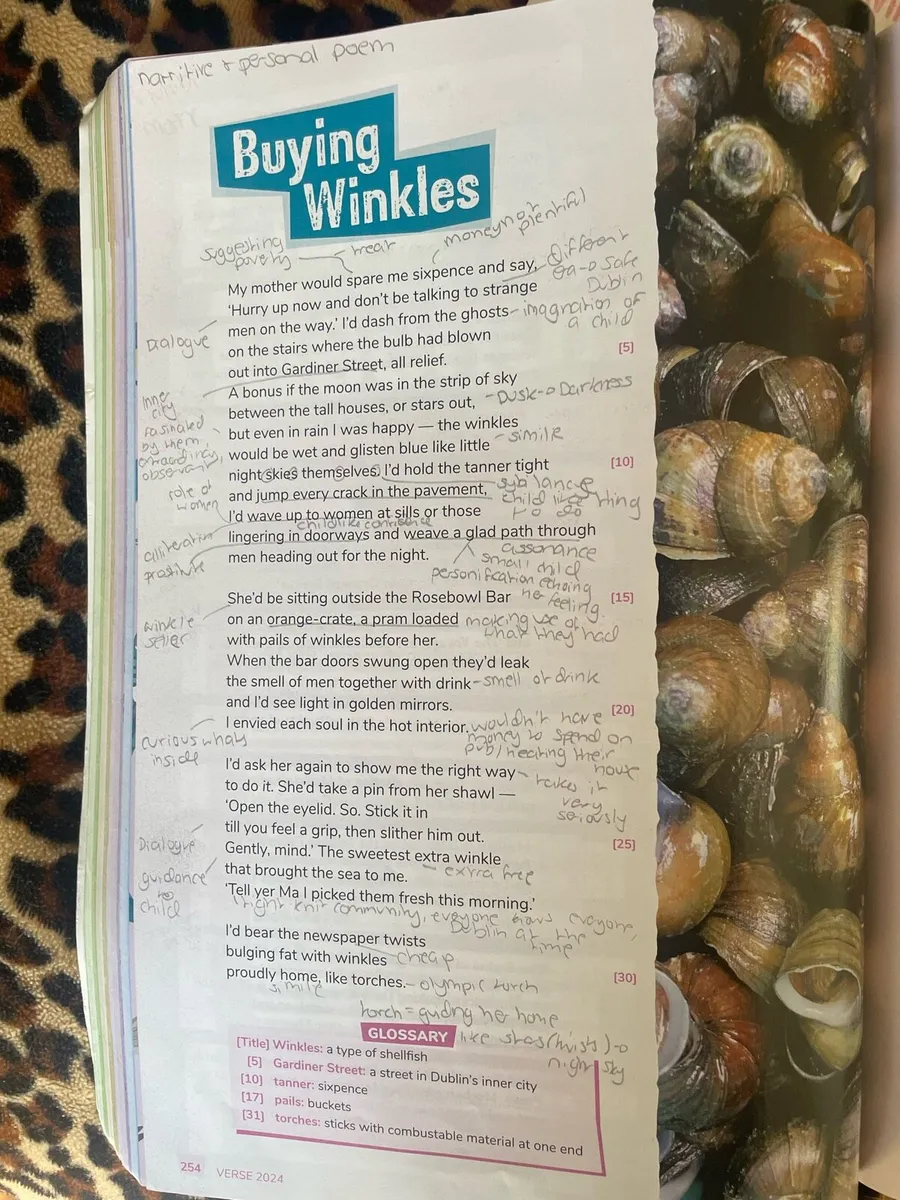 narritive + personal poem
Buying
Winkles
suggesting
poverty
treat
money not
plentiful
My mother would spare me sixpence and say,
different
era → safe
Dublin
'Hurry up now and don't be talking to strange
men on the way.' I'd dash from the ghosts
- imagnation of
a child
Dialogue
on the stairs where the bulb had blown
out into Gardiner Street, all relief.
[5]
A bonus if the moon was in the strip of sky
between the tall houses, or stars out,
- Dusk → Darkness
Inner
city
fasinated
by them,
extraordinary,
observant
but even in rain I was happy — the winkles
would be wet and glisten blue like little
- simile
night skies themselves. I'd hold the tanner tight
[10]
and jump every crack in the pavement,
syblance
child like thing
to do
role of
women
I'd wave up to women at sills or those
childlike confidence
lingering in doorways and weave a glad path through
alliteration
prostitute
men heading out for the night.
assonance
small child
personification echoing
her feeling
She'd be sitting outside the Rosebowl Bar
[15]
on an orange-crate, a pram loaded
making use of
what they had
winkle
seller
with pails of winkles before her.
When the bar doors swung open they'd leak
the smell of men together with drink
- smell of drink
and I'd see light in golden mirrors.
[20]
I envied each soul in the hot interior.
wouldn't have
money to spend on
pub/heating their
house
curious whats
inside
I'd ask her again to show me the right way
- takes it
very
seriously
to do it. She'd take a pin from her shawl —
'Open the eyelid. So. Stick it in
till you feel a grip, then slither him out.
[25]
Dialogue
Gently, mind.' The sweetest extra winkle
- extra free
that brought the sea to me.
guidance
to
child
'Tell yer Ma I picked them fresh this morning.'
tight knit community, everyone knows everyone,
Dublin at the
time
I'd bear the newspaper twists
bulging fat with winkles
cheap
proudly home, like torches.
- olympic torch
[30]
simile
torch = guding her home
like stars (twists) →
night sky
GLOSSARY
[Title] Winkles: a type of shellfish
[5] Gardiner Street: a street in Dublin's inner city
[10] tanner: sixpence
[17] pails: buckets
[31] torches: sticks with combustable material at one end
254 VERSE 2024